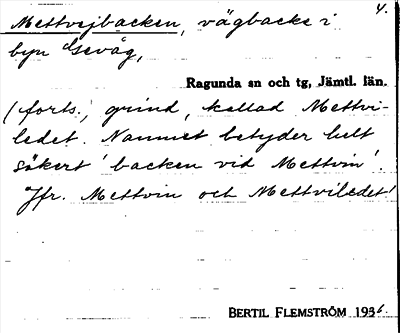 4.
Mettvejbacken, vägbacke i
byn Gevåg,
Ragunda sn och tg, Jämtl. län.
(forts., grind, kallad Mettvi-
ledet. Namnet betyder helt
säkert 'backen vid Mettvin'.
Jfr. Mettvin och Mettviledet!
BERTIL FLEMSTRÖM 1936.